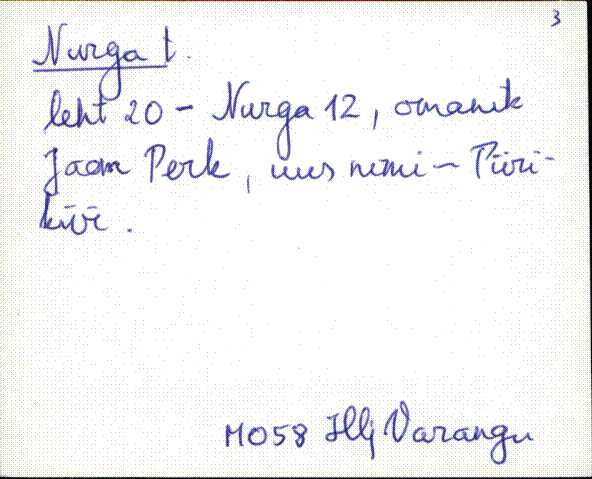 3
Nurga t.
leht 20 - Nurga 12, omanik
Jaan Perk, uus nimi - Piiri-
kivi.
M058 Hlj Varangu